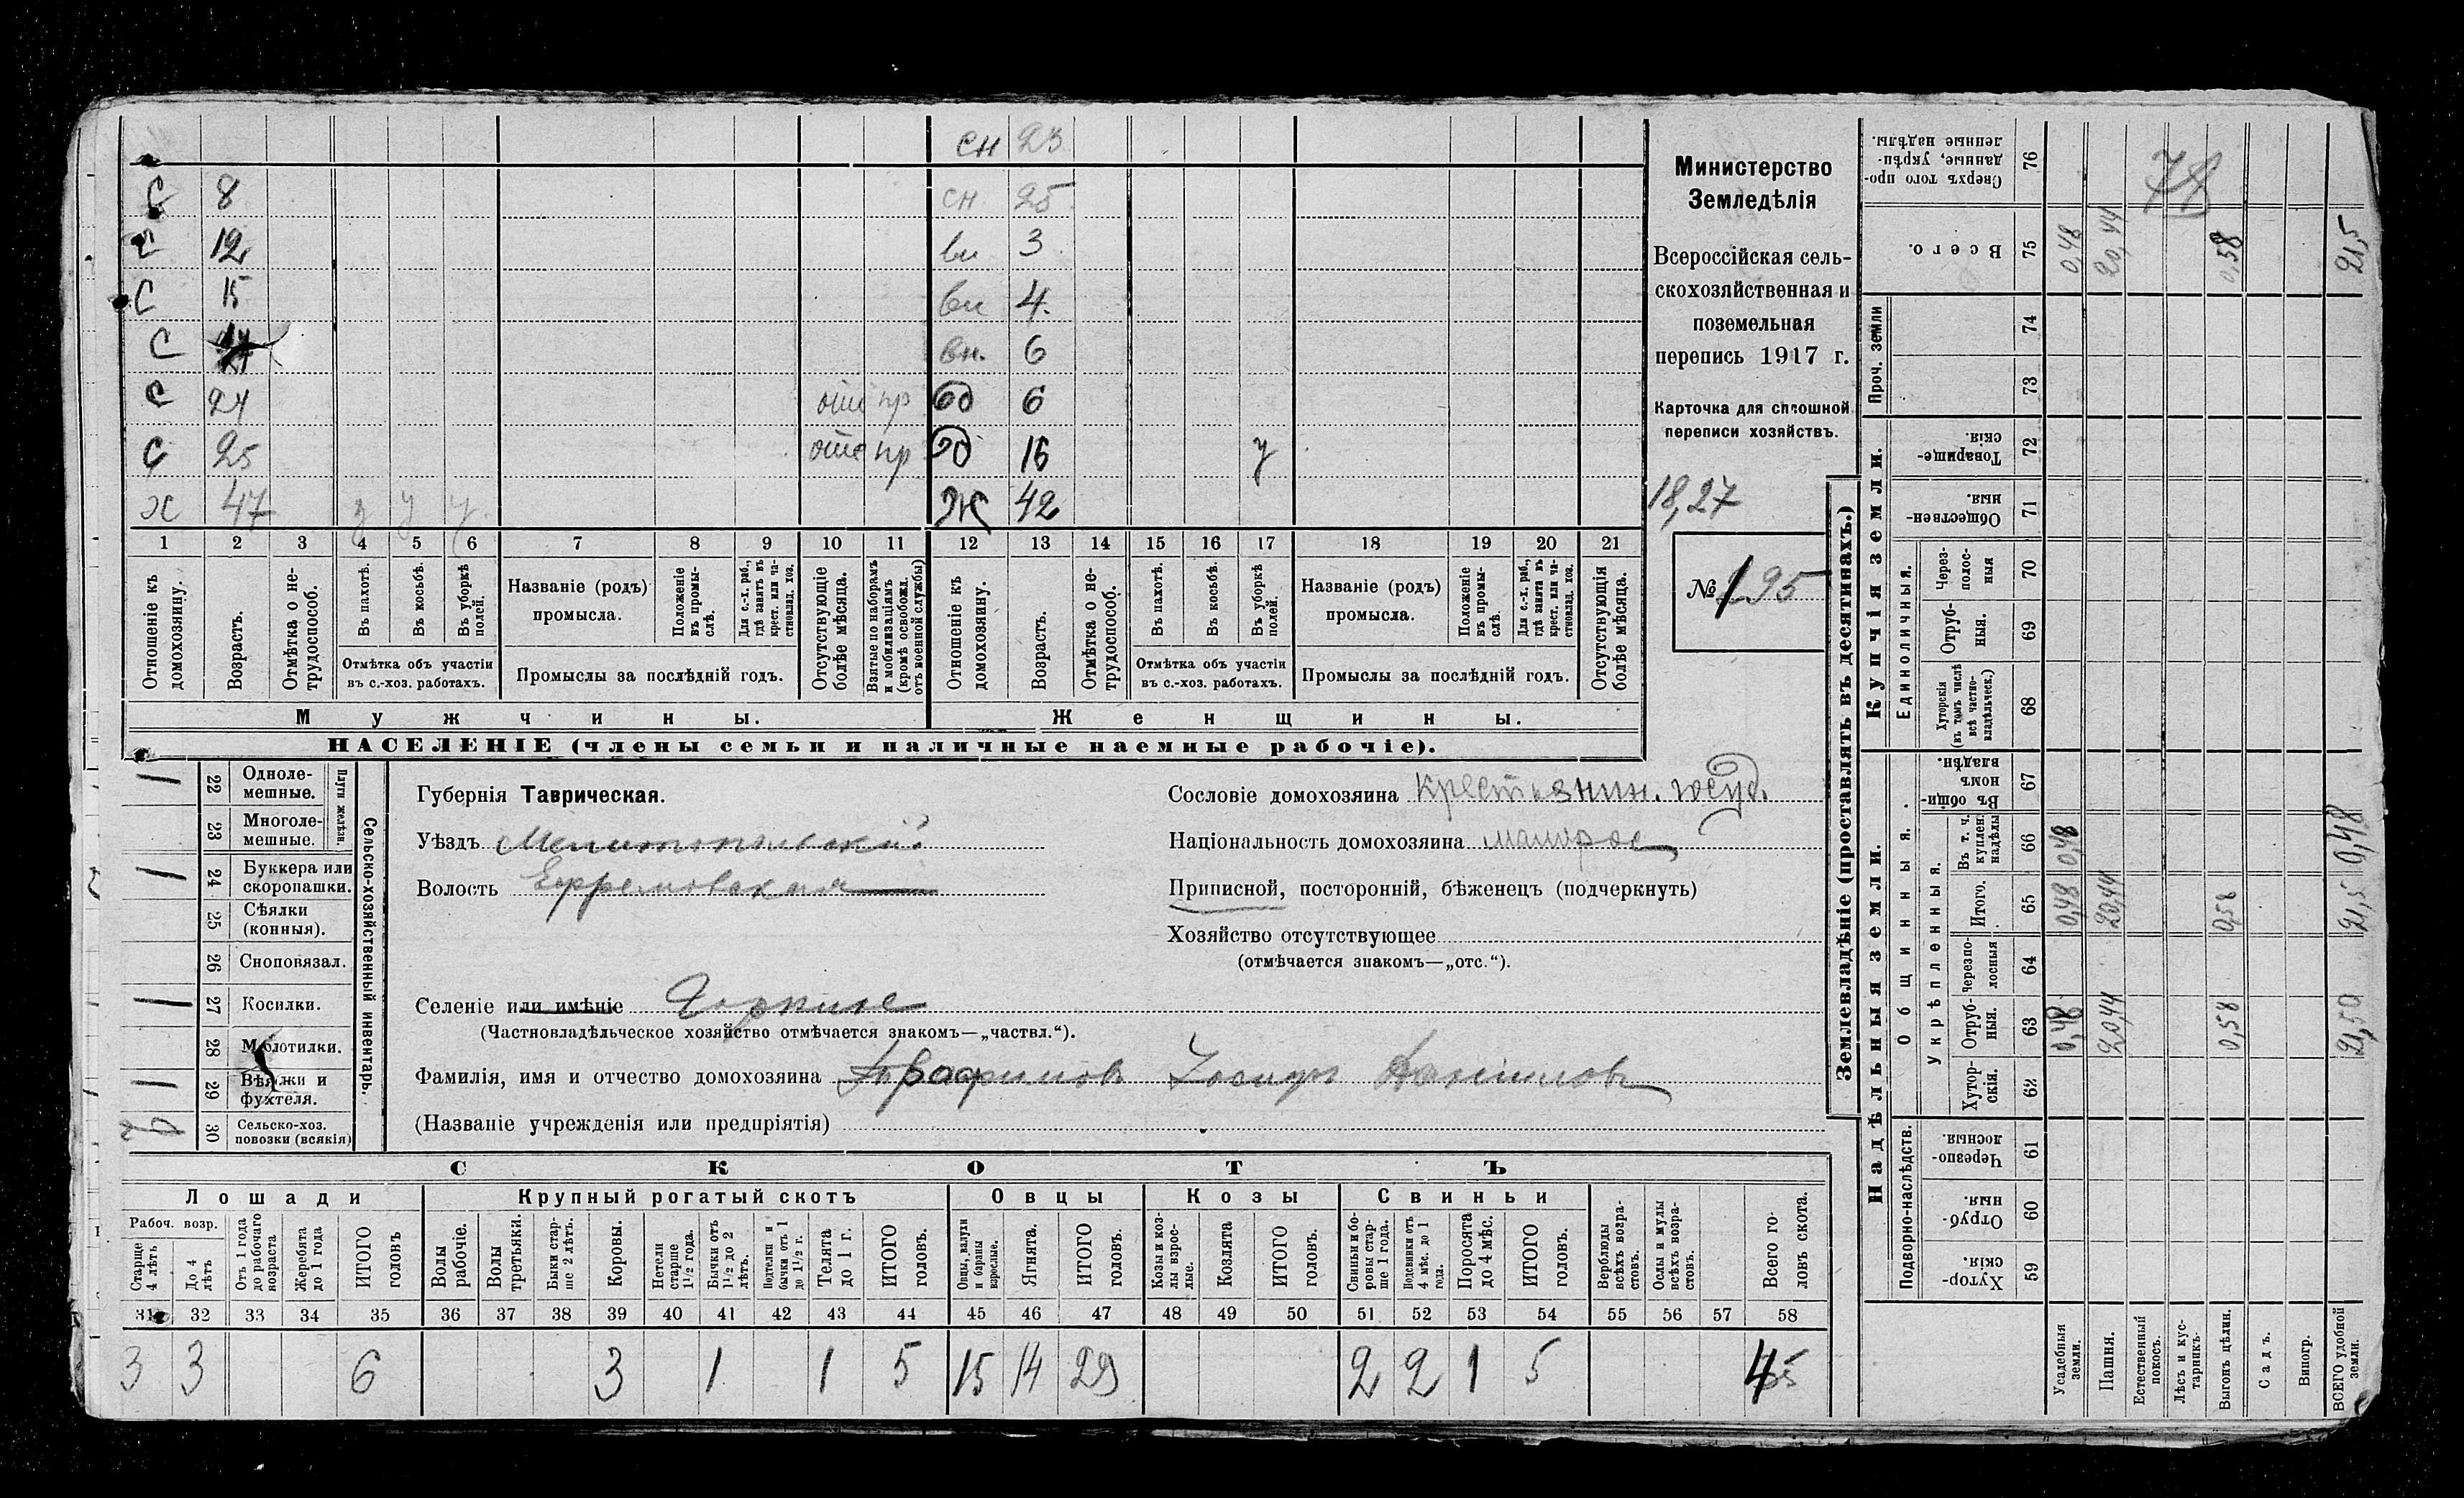 сн 23
С 8 сн 25
С 12 вн 3
С 15 вн 4.
С вн. 6
С 24 отс пр 6
С 25 отс пр 16 у
х 47 у у у Ж 42
1 2 3 4 5 6 7 8 9 10 11 12 13 14 15 16 17 18 19 20 21
Отношеніе къ домохозяину.
Возрастъ.
Отмѣтка о не-трудоспособ.
Въ пахотѣ.
Въ косьбѣ.
Въ уборкѣ полей.
Отмѣтка объ участіи въ с.-хоз. работахъ.
Названіе (родъ) промысла.
Положеніе въ промы-слѣ.
Для с.-х. раб., гдѣ занятъ въ крест. или ча-стновлад. хоз.
Промыслы за послѣдній годъ.
Отсутствующіе болѣе мѣсяца.
Взятые по наборамъ и мобилизаціямъ (кромѣ освобожд. отъ военной службы)
Отношеніе къ домохозяину.
Возрастъ.
Отмѣтка о не-трудоспособ.
Въ пахотѣ.
Въ косьбѣ.
Въ уборкѣ полей.
Отмѣтка объ участіи въ с.-хоз. работахъ.
Названіе (родъ) промысла.
Положеніе въ промы-слѣ.
Для с.-х. раб., гдѣ занятъ въ крест. или ча-стновлад. хоз.
Промыслы за послѣдній годъ.
Отсутствующія болѣе мѣсяца.
Мужчины. Женщины.
НАСЕЛЕНІЕ (члены семьи и наличные наемные рабочіе).
Министерство
Земледѣлія
Всероссійская сель-
скохозяйственная и
поземельная
перепись 1917 г.
Карточка для сплошной
переписи хозяйствъ.
18,27
№ 195
Сельско-хозяйственный инвентарь.
Плуги желѣзн.
1 22 Одноле-мешные.
23 Многоле-мешные.
1 24 Буккера или скоропашки.
25 Сѣялки (конныя).
26 Сноповязал.
1 27 Косилки.
28 Молотилки.
1 29 Вѣялки и фухтеля.
30 Сельско-хоз. повозки (всякія)
Губернія Таврическая.
Уѣздъ Мелитопольскій
Волость Ефремовская
Селеніе или имѣніе Горькие
(Частновладѣльческое хозяйство отмѣчается знакомъ—„частвл.“).
Фамилія, имя и отчество домохозяина Трафимовъ Іосифъ Даниловъ
(Названіе учрежденія или предпріятія)
Сословіе домохозяина Крестьянин. госуд.
Національность домохозяина малорос
Приписной, посторонній, бѣженецъ (подчеркнуть)
Хозяйство отсутствующее
(отмѣчается знакомъ—„отс.“).
СКОТЪ
Лошади Крупный рогатый скотъ Овцы Козы Свиньи
Рабоч. возр.
Старше 4 лѣтъ
До 4 лѣтъ
Отъ 1 года до рабочаго возраста
Жеребята до 1 года
ИТОГО головъ
Волы рабочіе.
Волы третьяки.
Быки стар-ше 2 лѣтъ.
Коровы.
Нетели старше 1½ года.
Бычки отъ 1½ до 2 лѣтъ.
Подтелки и бычки отъ 1 до 1½ г.
Телята до 1 г.
ИТОГО головъ.
Овцы, валухи и бараны взрослые.
Ягнята.
ИТОГО головъ.
Козы и коз-лы взрос-лые.
Козлята
ИТОГО головъ.
Свиньи и бо-ровы стар-ше 1 года.
Подсвинки отъ 4 мѣс. до 1 года.
Поросята до 4 мѣс.
ИТОГО головъ.
Верблюды всѣхъ возра-стовъ.
Ослы и мулы всѣхъ возра-стовъ.
Всего го-ловъ скота.
31 32 33 34 35 36 37 38 39 40 41 42 43 44 45 46 47 48 49 50 51 52 53 54 55 56 57 58
3 3 6 3 1 1 5 15 14 29 2 2 1 5 45
Землевладѣніе (проставлять въ десятинахъ.)
Надѣльныя земли. Купчія земли. Проч. земли
Подворно-наслѣдств.
Общинныя.
Укрѣпленныя.
Единоличныя.
59 Хутор-скія.
60 Отруб-ныя.
61 Черезпо-лосныя.
62 Хутор-скія.
63 Отруб-ныя. 0,48 20,44 0,58 21,50
64 Черезпо-лосныя
65 Итого. 0,48 20,44 0,58 21,5
66 Въ т. ч. куплен. надѣлы 0,48 0,48
67 Въ общин-номъ владѣн.
68 Хуторскія (въ томъ числѣ всѣ частно-владѣльческ.)
69 Отруб-ныя.
70 Через-полос-ныя
71 Обществен-ныя.
72 Товарище-скія.
73
74
75 Всего. 0,48 20,44 0,58 21,5
76 Сверхъ того про-данные, укрѣп-ленные надѣлы.
78
Усадебныя земли.
Пашня.
Естественный покосъ.
Лѣсъ и кус-тарникъ.
Выгонъ цѣлин.
Садъ.
Виногр.
ВСЕГО удобной земли.